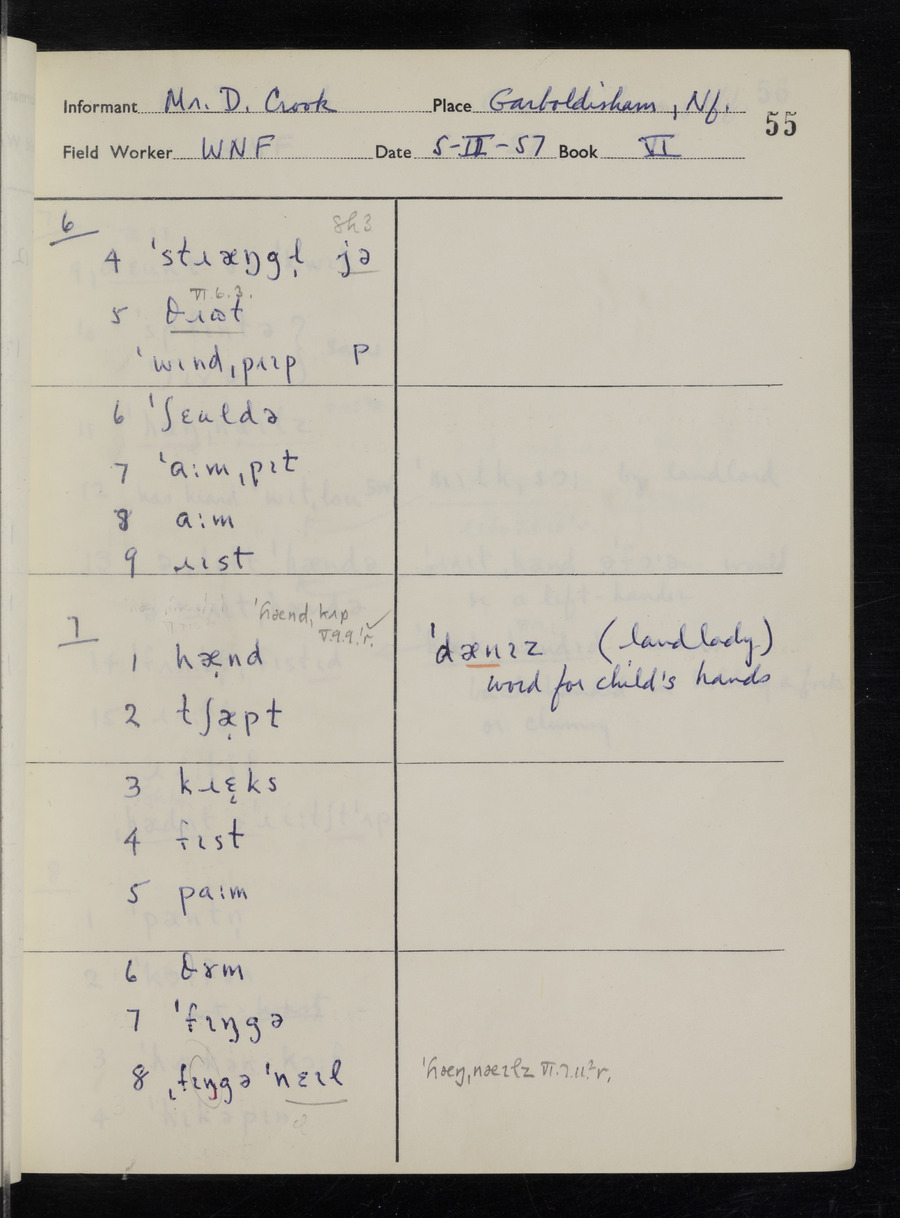 Informant Mr. D. Crook Place Garboldisham, Nf.
55
Field Worker WNF Date 5-II-57 Book VI
6
8h3
4 ˈstɹæŋgɫ̩ jə
VI.6.3.
5 θɹɷt
ˈwɪnd,pɪɪp P
6 ˈʃɛuɫdə
7 ˈaːm,pɪt
8 aːm
9 ɹɪst
7
ˈhænd,kɪp
V.9.9.ˈr.
1 hæ̞nd
ˈdænɪz (landlady)
word for child's hands
2 tʃæ̞pt
3 kɹɛ̞ks
4 fɪst
5 paːm
6 θɤm
7 ˈfɪŋgə
8 ˌfɪŋgəˈnɛɪɫ
ˈhæŋ,næɪɫz VI.7.11.²r.